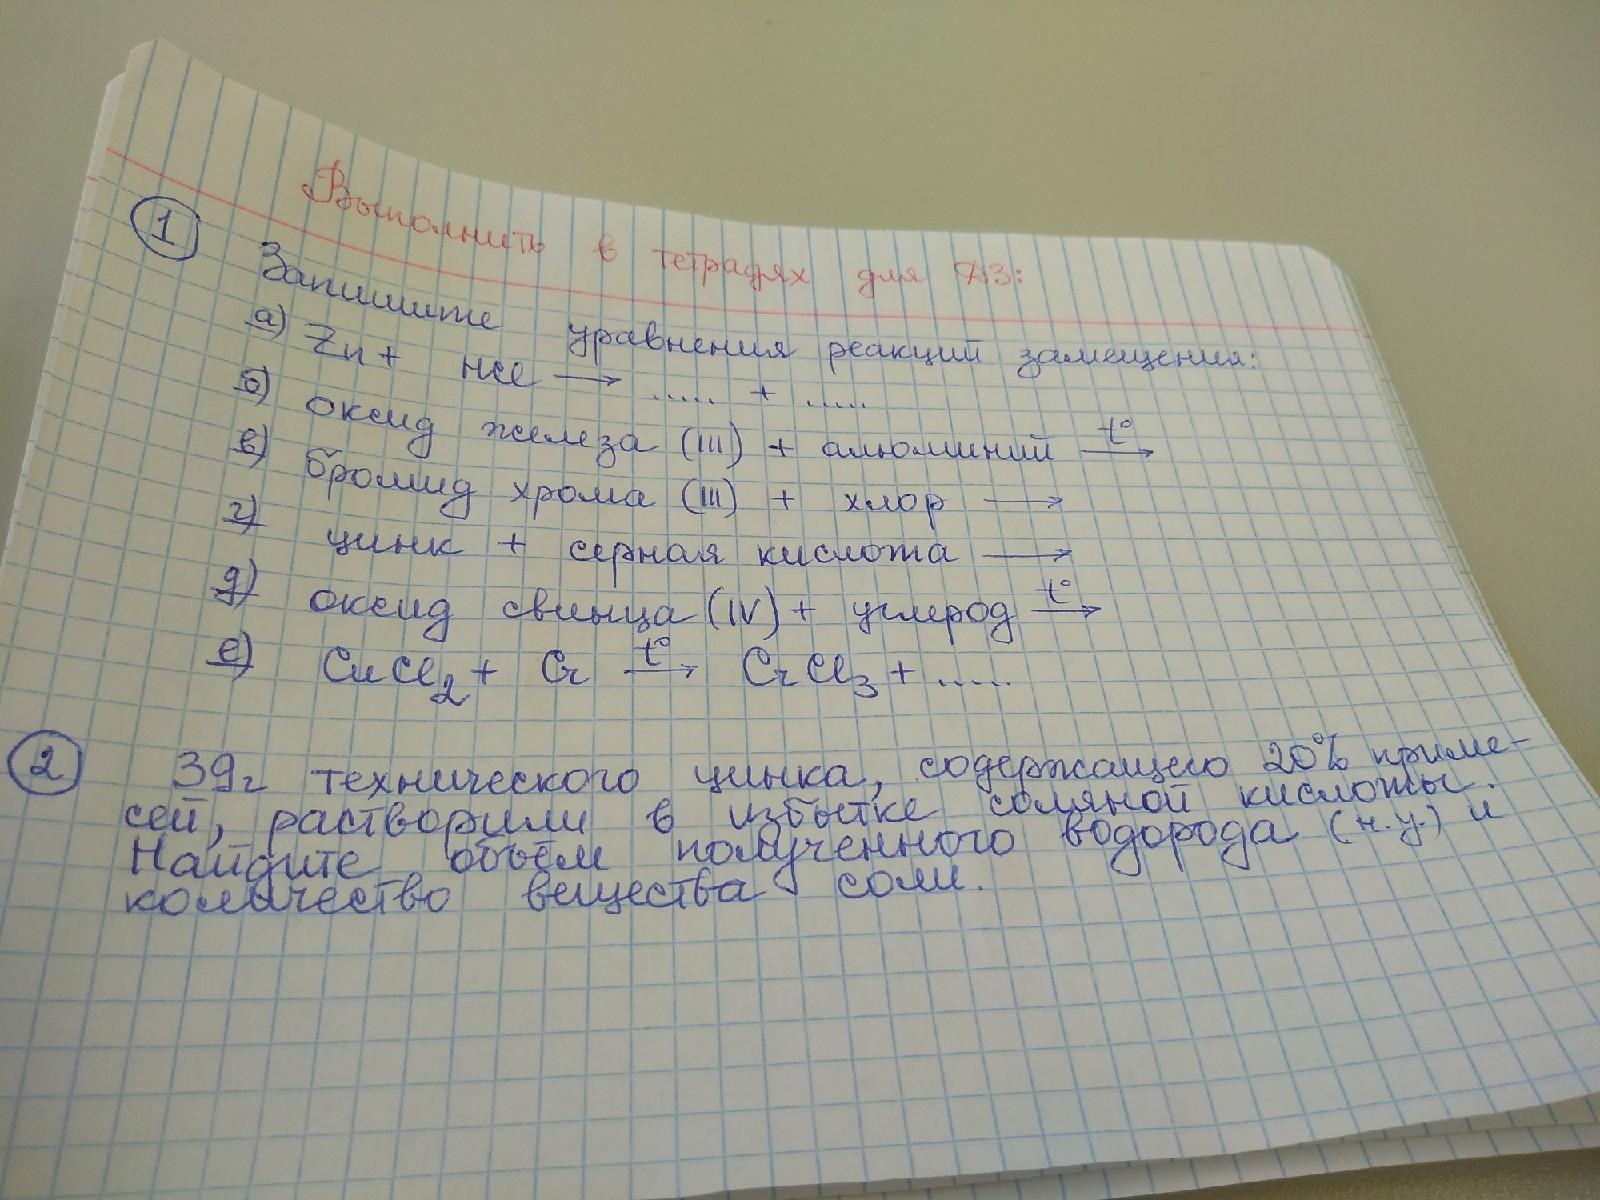 Выполнить в тетрадях для ДЗ:
1 Запишите уравнения реакций замещения:
а) Zn + HCl → ..... + .....
б) оксид железа (III) + алюминий t° →
в) бромид хрома (III) + хлор →
г) цинк + серная кислота →
д) оксид свинца (IV) + углерод t° →
е) CuCl₂ + Cr t° → CrCl₃ + .....
2 39г технического цинка, содержащего 20% приме-
сей, растворили в избытке соляной кислоты.
Найдите объём полученного водорода (н.у.) и
количество вещества соли.